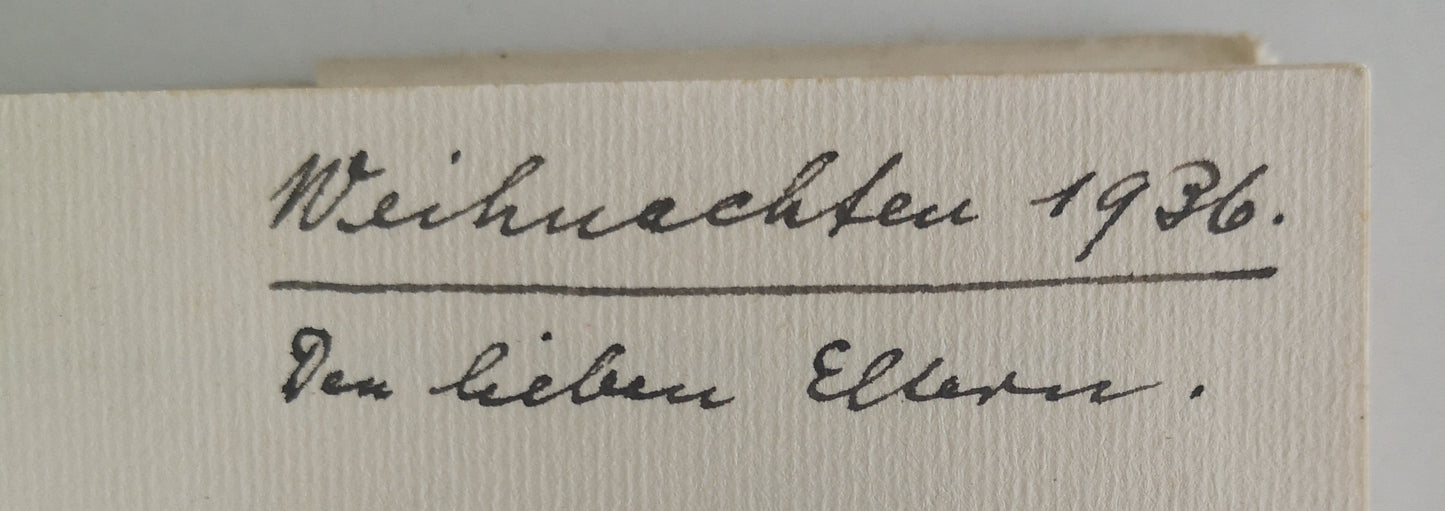 Weihnachten 1936.
Den lieben Eltern.